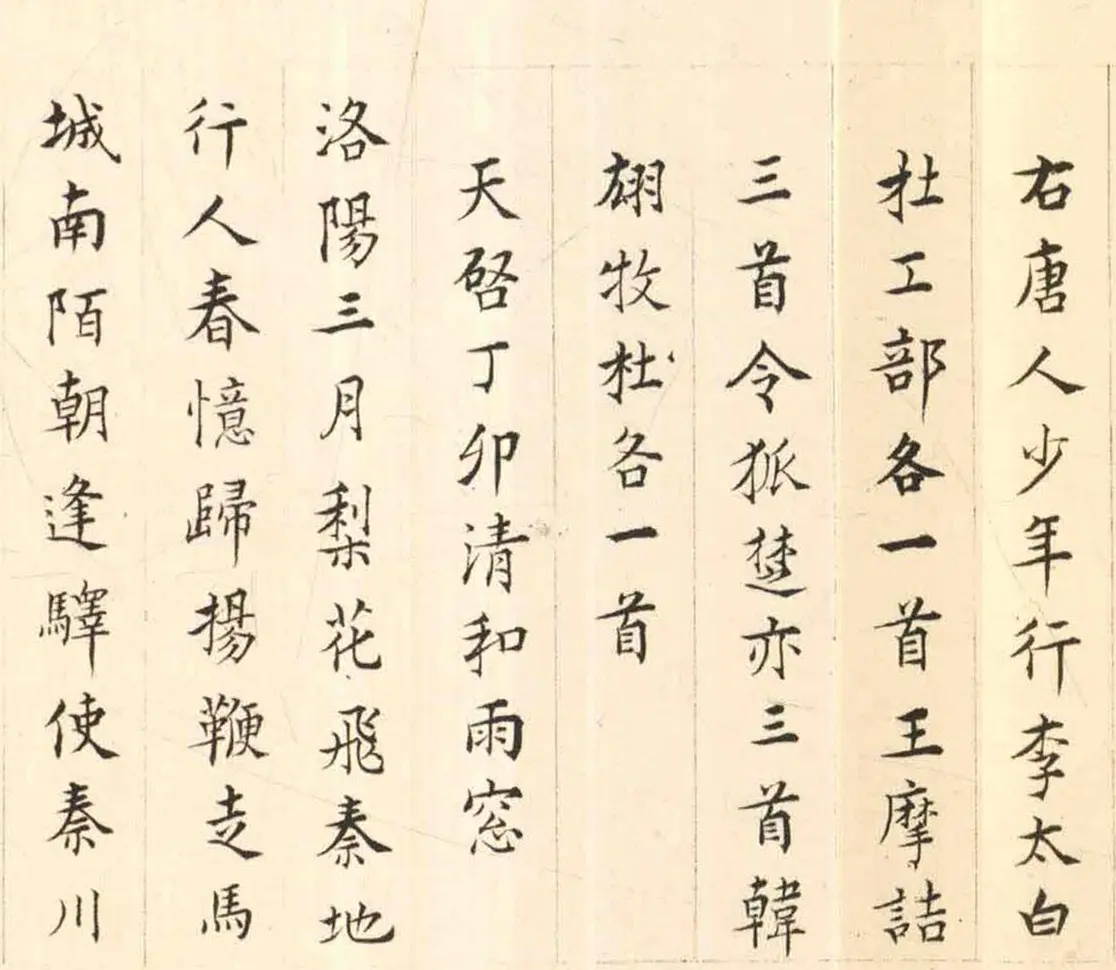 右唐人少年行李太白
杜工部各一首王摩詰
三首令狐楚亦三首韓
翃牧杜各一首
天啓丁卯清和雨窓
洛陽三月梨花飛秦地
行人春憶歸揚鞭走馬
城南陌朝逢驛使秦川